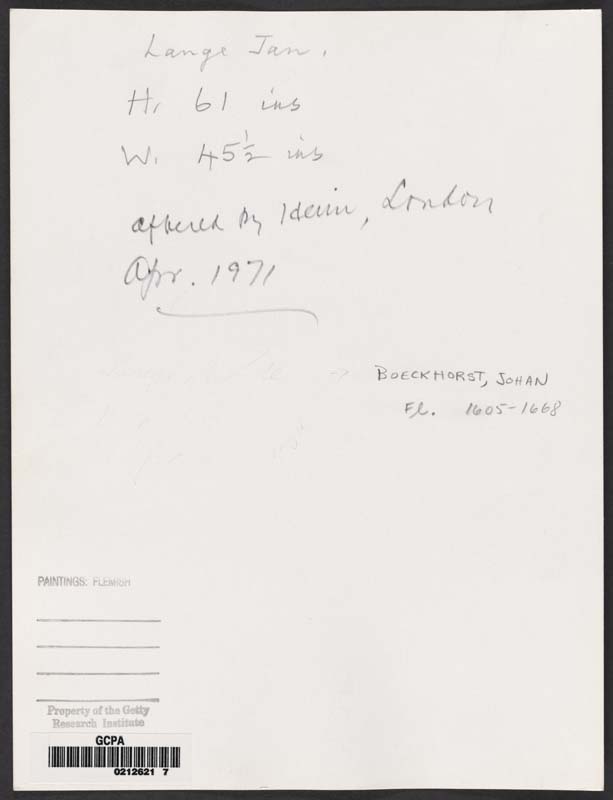 Lange Jan.
H. 61 ins
W. 45½ ins
offered by Heim, London
Apr. 1971
→ BOECKHORST, JOHAN
Fl. 1605-1668
PAINTINGS: FLEMISH
Property of the Getty
Research Institute
GCPA
0212621 7